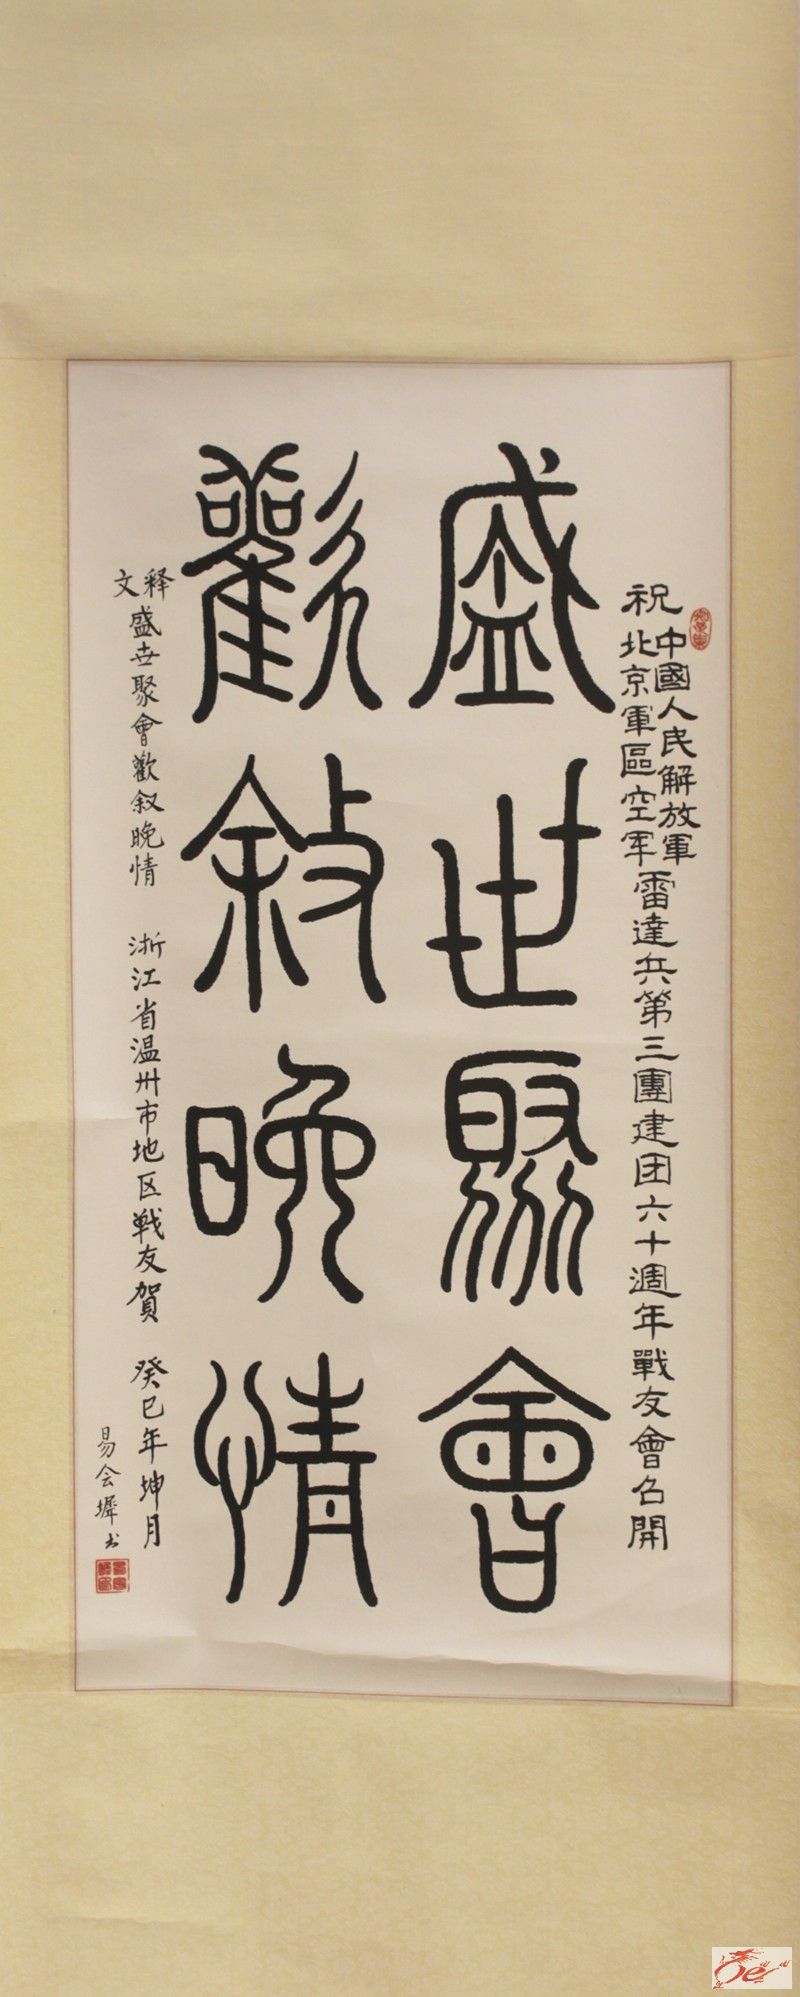 祝中國人民解放軍北京軍區空军雷達兵第三團建团六十週年戰友會召開
盛世聚會
歡敘晚情
释文盛世聚會歡叙晚情 浙江省温州市地区戰友賀 癸巳年坤月
易会墀书